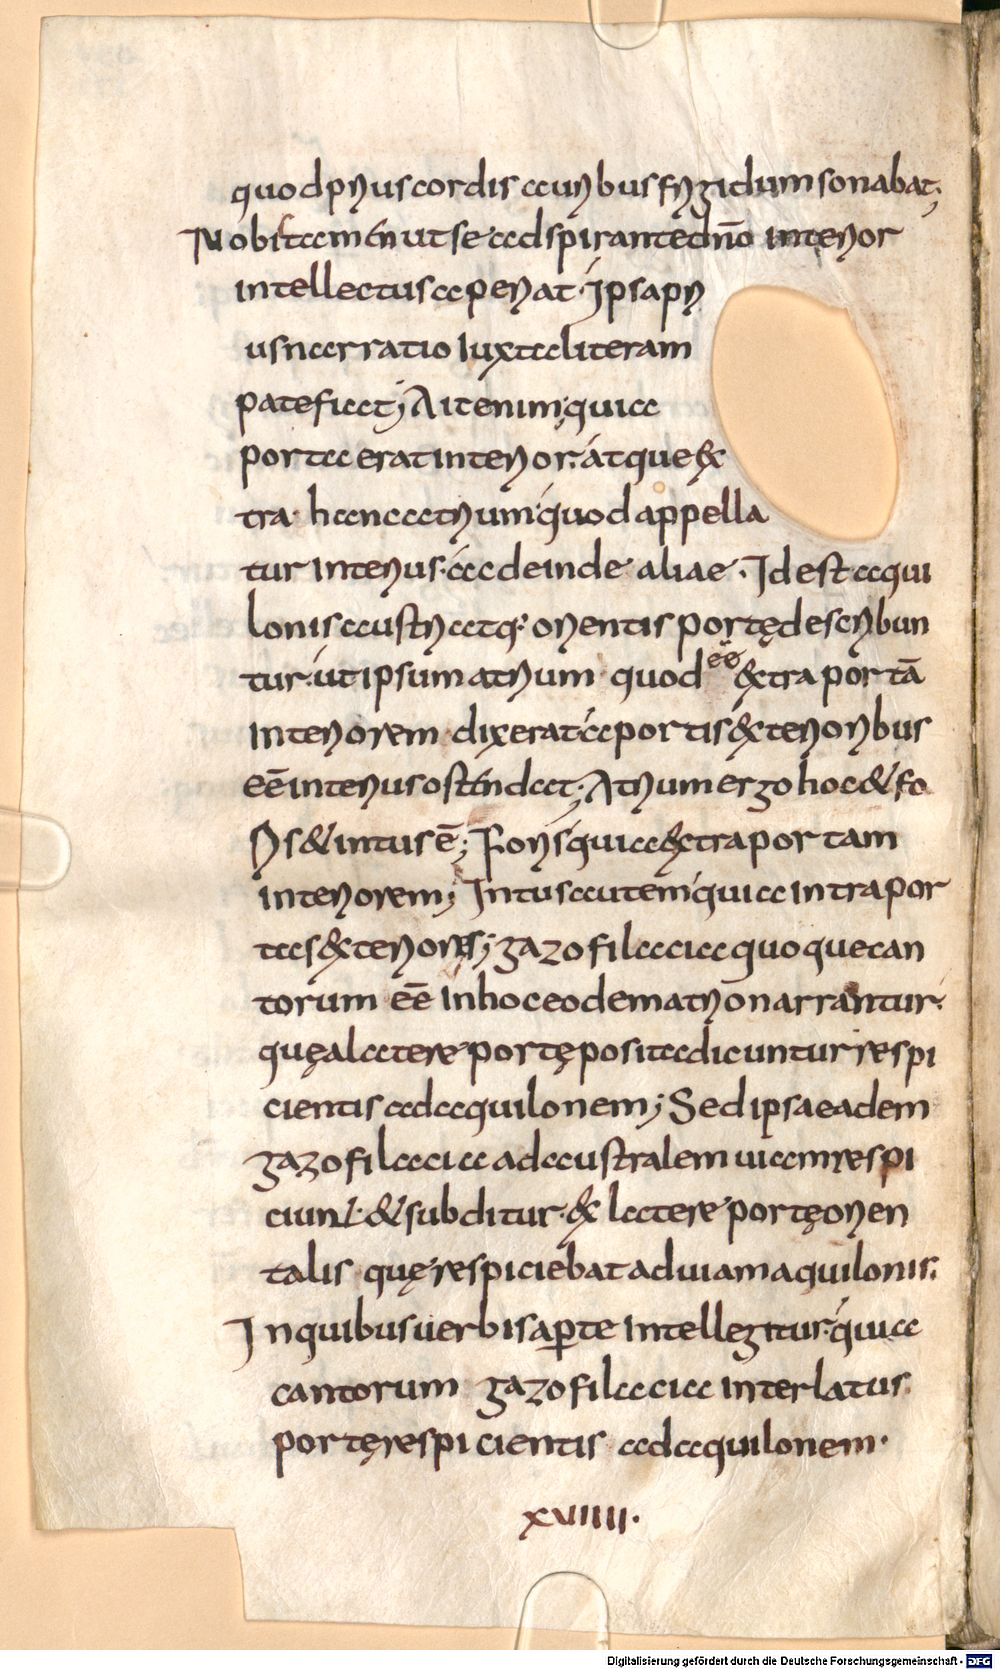 quod prius cordis auribus frigidum sonabat;
Nobis tam͞en ut se adspirante dn͞o interior
intellectus aperiat. ipsa pri
us narratio iuxta literam
patefiat; Ait enim; quia
porta erat interior. atque ex
tra. hanc atrium. quod appella
tur interius. ac deinde aliae. Id est aqui
lonis austri atq: orientis portę describun
tur. ut ipsum atrium quod e͞e extra portā
interiorem dixerat a portis exterioribus
e͞e interius ostendat; Atrium ergo hoc & fo
ris & intus ē; Foris quia extra portam
interiorem; Intus autem quia intra por
tas exteriores; gazofilacia quoque can
torum e͞e in hoc eodem atrio narrantur.
quę a latere portę posita dicuntur respi
cientis ad aquilonem; Sed ipsa eadem
gazofilacia ad australem uiam respi
ciunt. & subditur. ex latere portę orien
talis quę respiciebat ad uiam aquilonis.
In quibus uerbis aperte intellegitur. quia
cantorum gazofilacia inter latus
portę respicientis ad aquilonem.
xviiii.
Digitalisierung gefördert durch die Deutsche Forschungsgemeinschaft - DFG